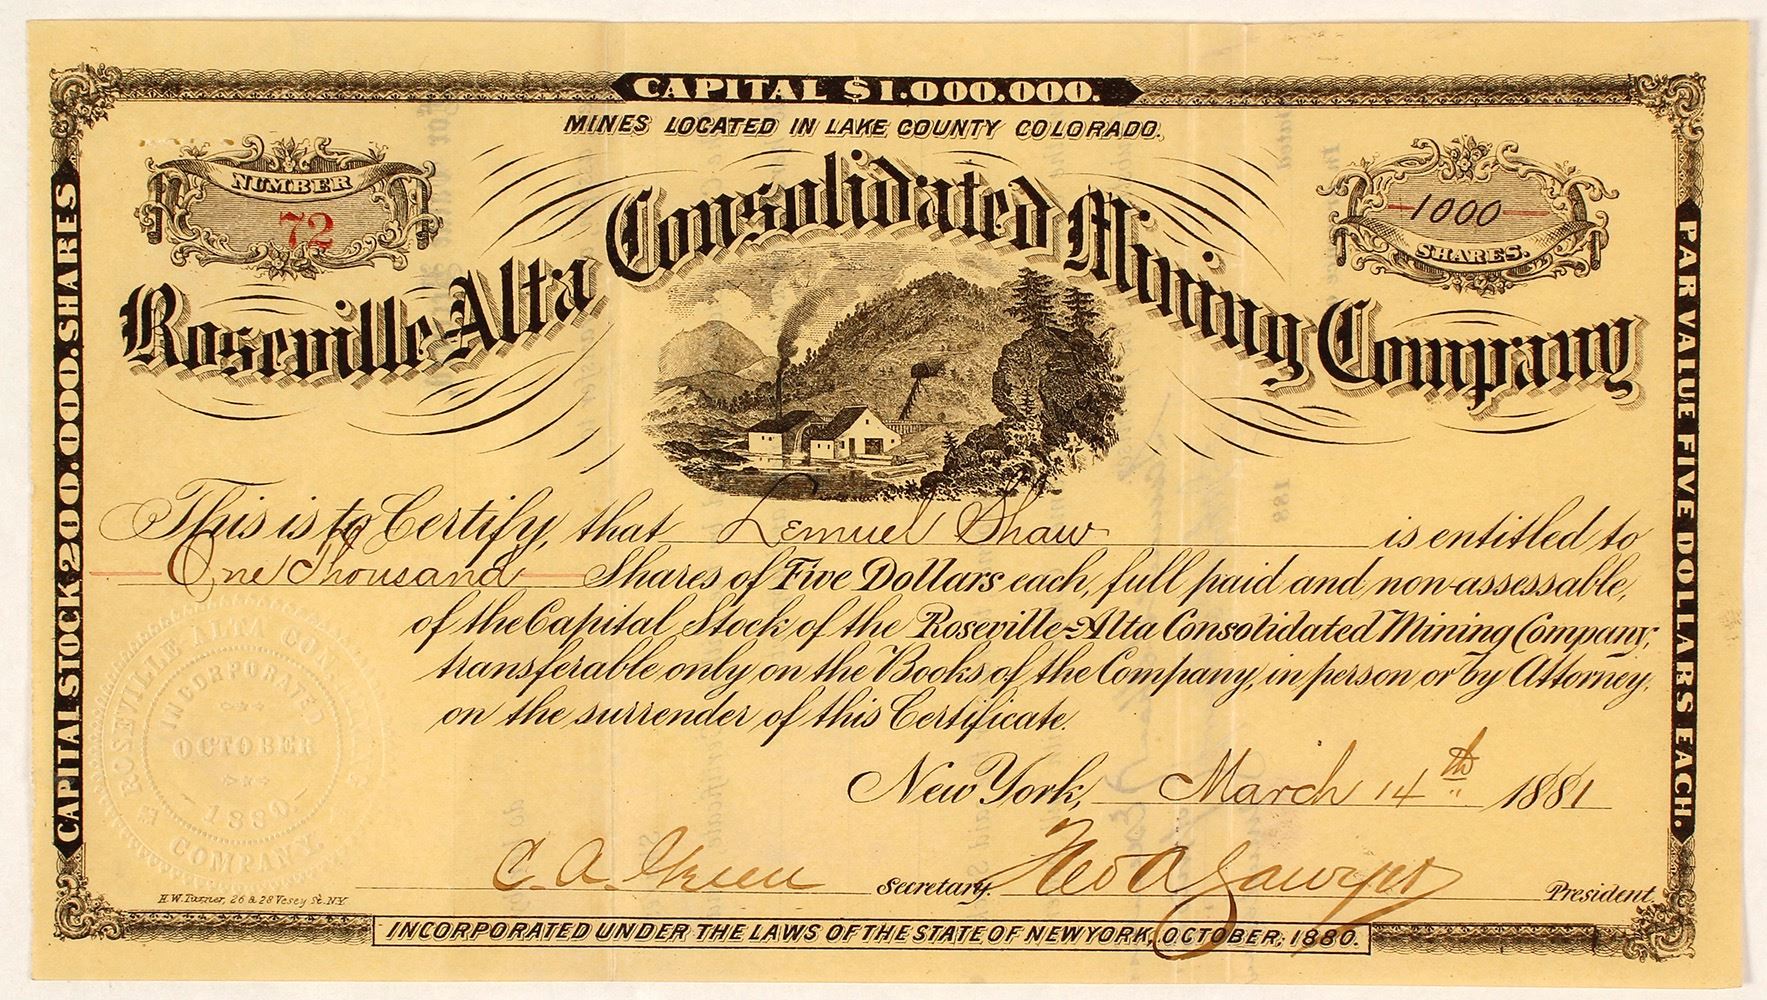 CAPITAL $1.000.000.
MINES LOCATED IN LAKE COUNTY COLORADO.
NUMBER
72
1000
SHARES.
Roseville-Alta Consolidated Mining Company
CAPITAL STOCK 200.000. SHARES
PAR VALUE FIVE DOLLARS EACH.
This is to Certify, that Lemuel Shaw is entitled to
One Thousand Shares of Five Dollars each, full paid and non-assessable,
of the Capital Stock of the Roseville-Alta Consolidated Mining Company,
transferable only on the Books of the Company, in person or by Attorney,
on the surrender of this Certificate.
New York, March 14th 1881
ROSEVILLE ALTA CON. MINING COMPANY.
INCORPORATED
OCTOBER
1880.
C. A. Green Secretary. Geo A Sawyer President.
H.W. Turner, 26 & 28 Vesey St. N.Y.
INCORPORATED UNDER THE LAWS OF THE STATE OF NEW YORK, OCTOBER, 1880.